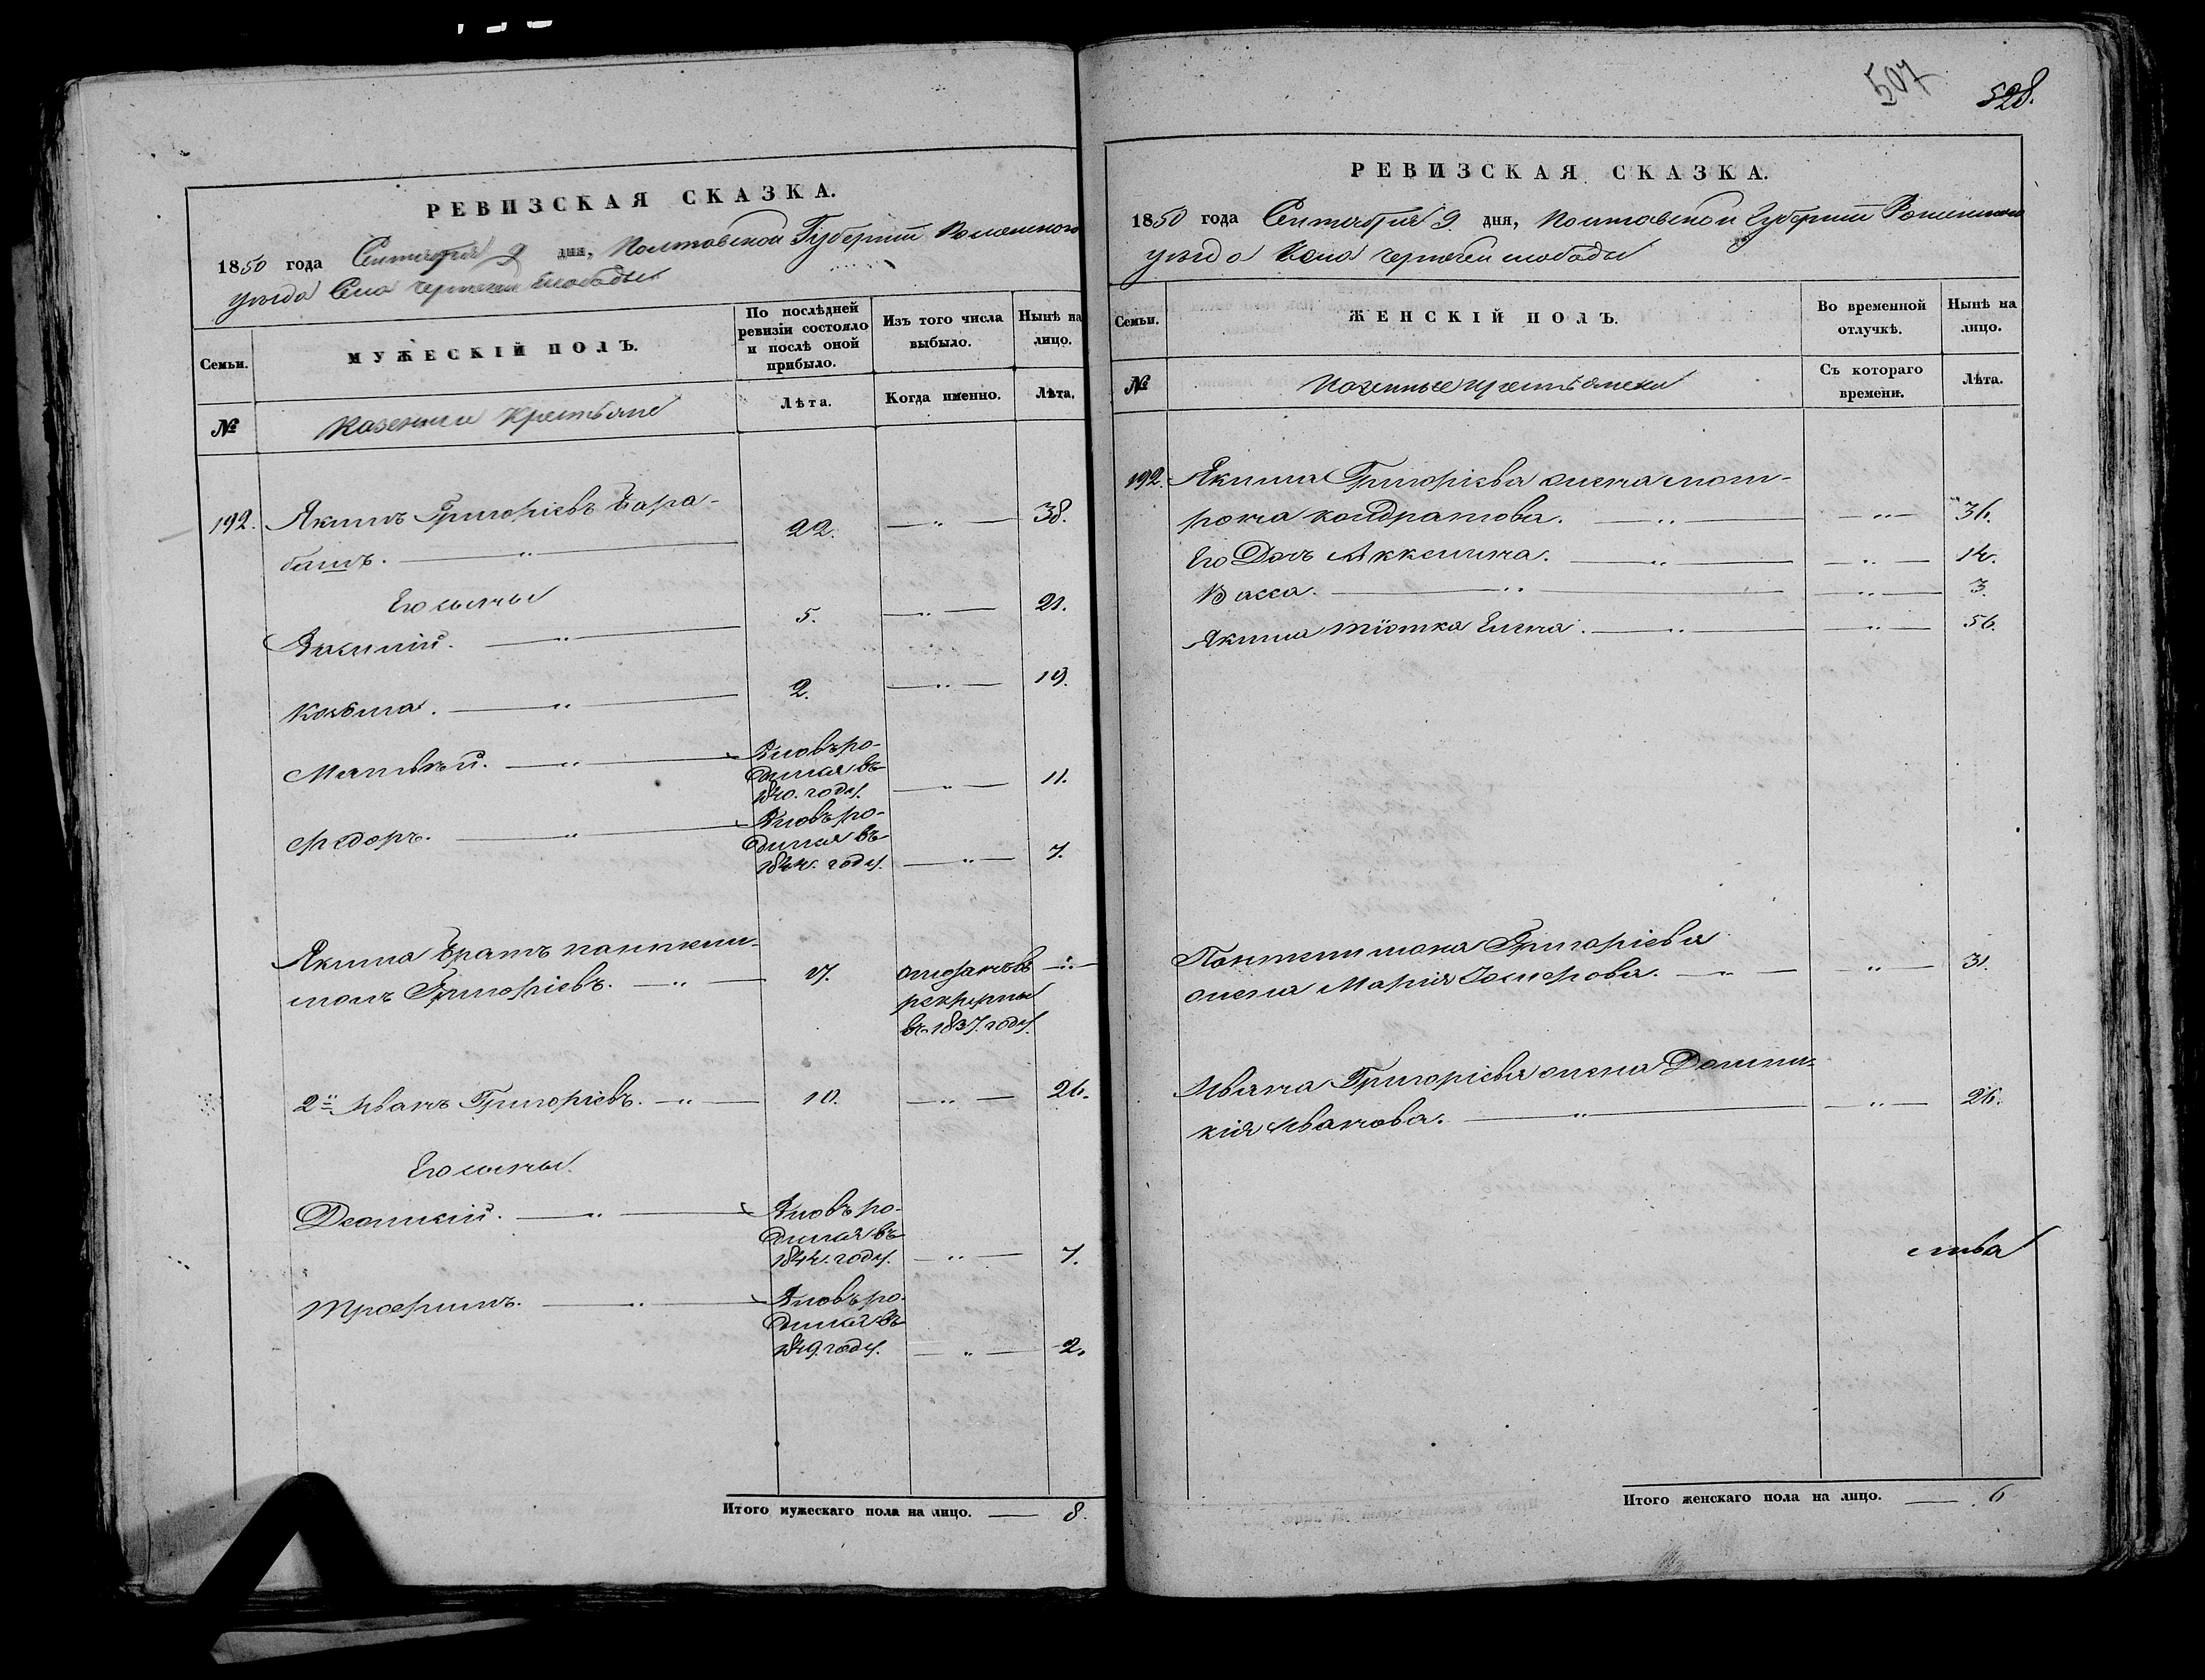 РЕВИЗСКАЯ СКАЗКА.
1850 года Сентября 9 дня, Полтавской Губерніи Роменского
уезда Села Чернечей Слободы
Семьи.
МУЖЕСКІЙ ПОЛЪ.
По послѣдней
ревизіи состояло
и послѣ оной
прибыло.
Изъ того числа
выбыло.
Нынѣ на
лицо.
№
Казенные Крестьяне
Лѣта.
Когда именно.
Лѣта.
192. Якимъ Григоріевъ Бара- 22. — " — 38.
башъ. — " —
Его сыны
5. — " — 21.
Козьма. — " — 2. — " — 19.
Матвѣй. — " — Вновь ро-
дился въ
1840. году. — " — 11.
Федоръ. — " — Вновь ро-
дился въ
1844. году. — " — 7.
Якима Братъ Пантели-
монъ Григоріевъ. — " — 17. отданъ въ — " —
рекруты
въ 1837. году.
2й Иванъ Григоріевъ. — " — 10. — " — 26.
Его сыны.
— " — Вновь ро-
дился въ
1844. году. — " — 7.
Трофимъ. — " — Вновь ро-
дился въ
1849. году. — " — 2.
Итого мужескаго пола на лицо. — 8.
507
528.
РЕВИЗСКАЯ СКАЗКА.
1850 года Сентября 9 дня, Полтавской Губерніи Роменского
уезда Села Чернечей слободы
Семьи.
ЖЕНСКІЙ ПОЛЪ.
Во временной
отлучкѣ.
Нынѣ на
лицо.
№
Казенные крестьянки
Съ котораго
времени.
Лѣта.
192. Якима Григоріева жена Мот-
рона Кондратова. — " — — " — 36.
Его Дочь Акксинья. — " — — " — 14.
Васса. — " — — " — 3.
Якима тіотка Елена. — " — — " — 56.
Пантелимона Григоріева
жена Марія Іосифова. — " — — " — 31.
Ивана Григоріева жена Доми-
кія Иванова. — " — — " — 26.
Итого женскаго пола на лицо. — 6